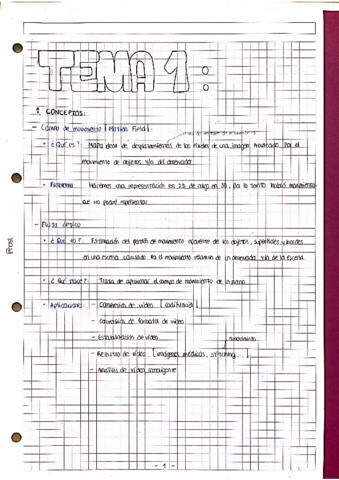 TEMA 1:
1. CONCEPTOS:
- Campo de movimiento (Motion Field):
• ¿Qué es?: Mapa ideal de desplazamientos de los píxeles de una imagen motivado por el
movimiento de objetos y/o del observador
• Problema: Hacemos una representación en 2D de algo en 3D, por lo tanto habrá movimientos
que no podré representar
- Flujo óptico
• ¿Qué es?: Estimación del patrón de movimiento aparente de los objetos, superficies y bordes
en una escena causado por el movimiento relativo de un observador y/o de la escena.
• ¿Qué hace?: Trata de aproximar el campo de movimiento de la escena
• Aplicaciones: - Compresión de vídeo (codificando)
- Conversión de formatos de vídeo
- Estabilización de vídeo
- Registro de vídeo (imágenes médicas, stitching
- Análisis de vídeo inteligente
- 1 -